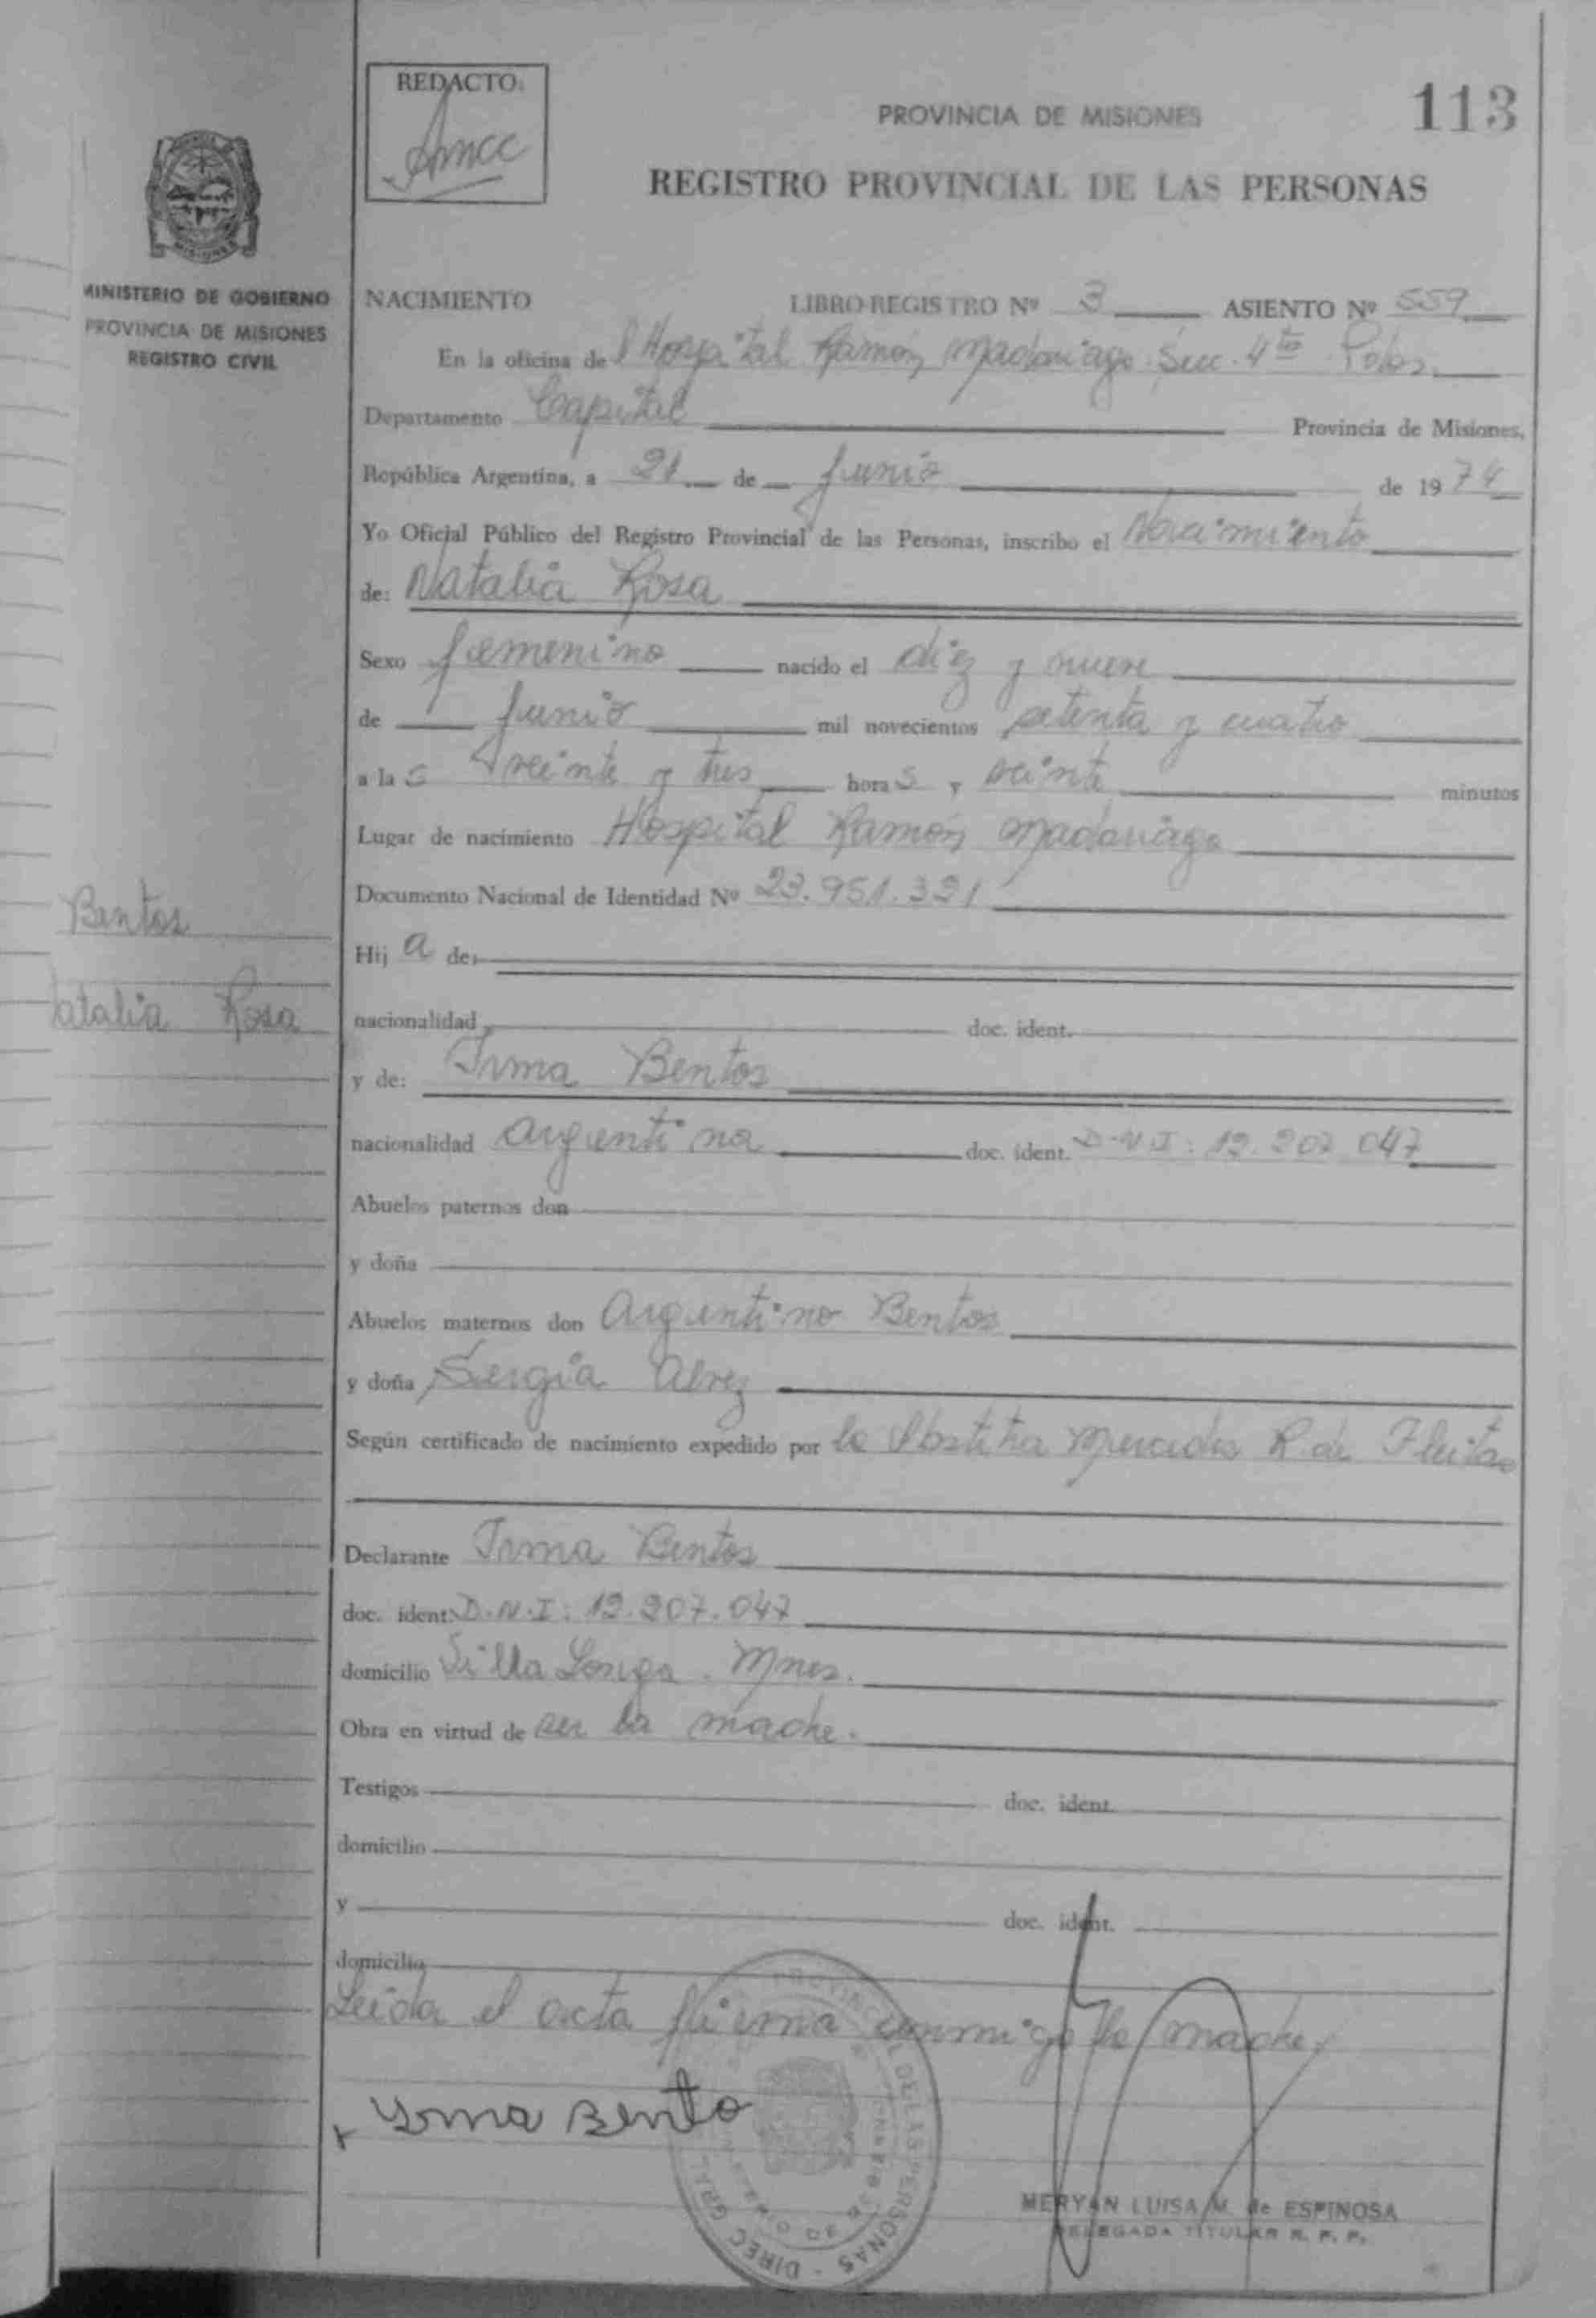 REDACTO:
PROVINCIA DE MISIONES
113
REGISTRO PROVINCIAL DE LAS PERSONAS
MISIONES
MINISTERIO DE GOBIERNO
PROVINCIA DE MISIONES
REGISTRO CIVIL
NACIMIENTO LIBRO-REGISTRO Nº 3 ASIENTO Nº 559
En la oficina de l Hospital Ramón Madariaga. Secc. 4ta Pdas.
Departamento Capital Provincia de Misiones,
República Argentina, a 21 de Junio de 1974
Yo Oficial Público del Registro Provincial de las Personas, inscribo el Nacimiento
de: Natalia Rosa
Sexo femenino nacido el diez y nueve
de Junio mil novecientos setenta y cuatro
a las veinte y tres horas y veinte minutos
Lugar de nacimiento Hospital Ramón Madariaga
Documento Nacional de Identidad Nº 23.951.331
Bentos
Hija de:
atalia Rosa
nacionalidad doc. ident.
y de: Irma Bentos
nacionalidad argentina doc. ident. D.N.I: 12.207.047
Abuelos paternos don
y doña
Abuelos maternos don Argentino Bentos
y doña Sergia Alvez
Según certificado de nacimiento expedido por la Obstetra Mercedes R. de Fleitas
Declarante Irma Bentos
doc. ident: D.N.I: 12.207.047
domicilio Villa Longa. Mnes.
Obra en virtud de ser la madre.
Testigos doc. ident.
domicilio
y doc. ident.
domicilio
Leída el acta firma conmigo la madre
x Yrma Bento
PROVINCIAL DE LAS PERSONAS - DIREC. GRAL.
MINISTERIO DE
MERYAN LUISA M. de ESPINOSA
DELEGADA TITULAR R. P. P.